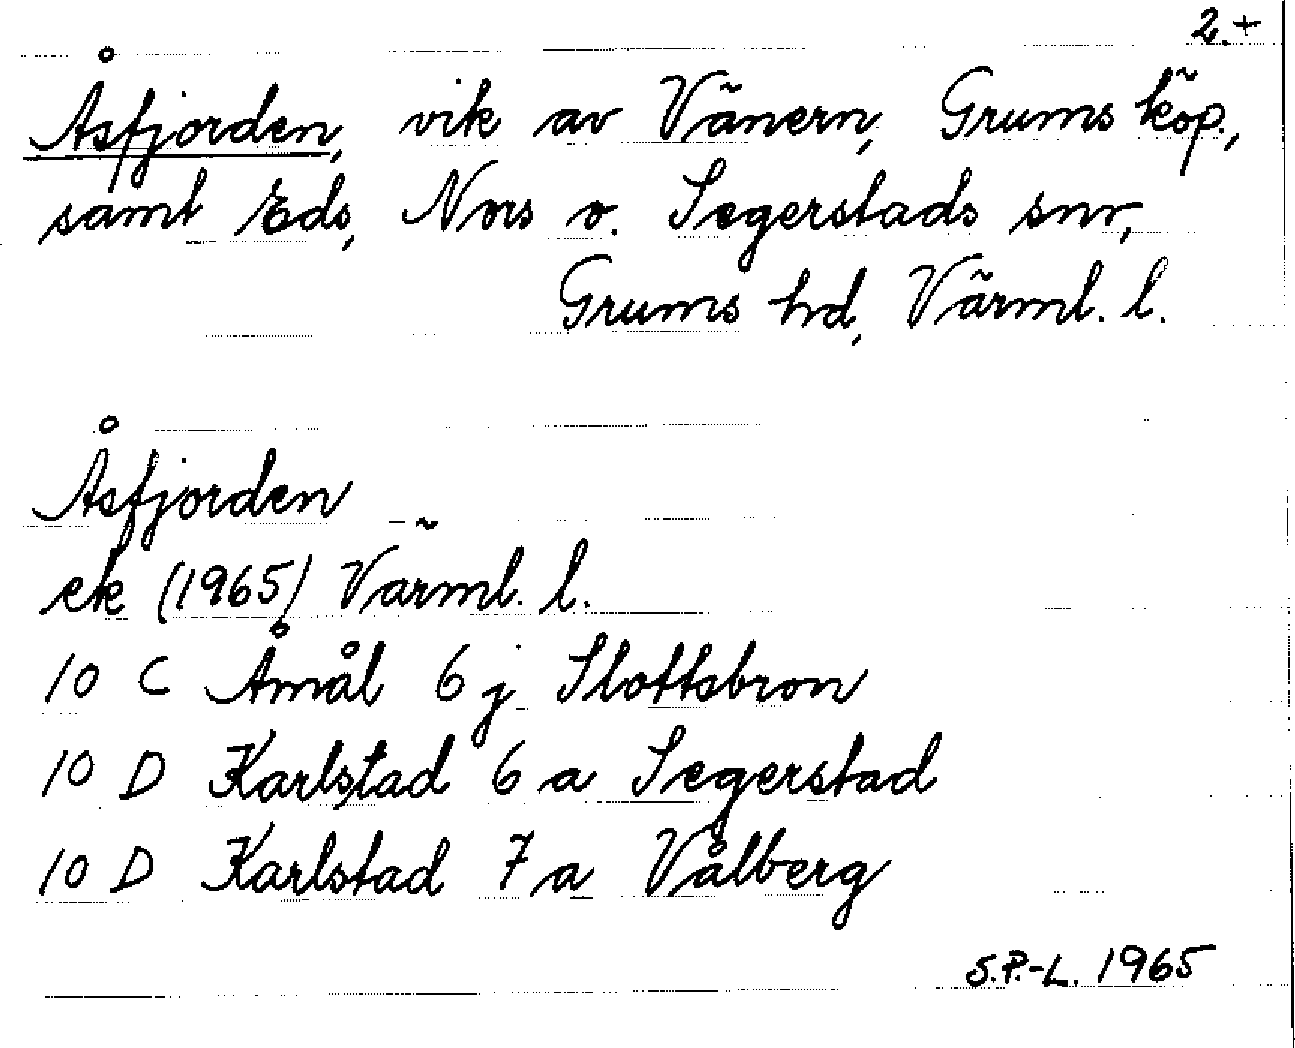 2.+
Åsfjorden, vik av Vänern, Grums köp.,
samt Eds, Nors o. Segerstads snr,
Grums hd, Värml. l.
Åsfjorden
ek (1965) Värml. l.
10 C Åmål 6 j Slottsbron
10 D Karlstad 6 a Segerstad
10 D Karlstad 7 a Vålberg
S.P.-L. 1965